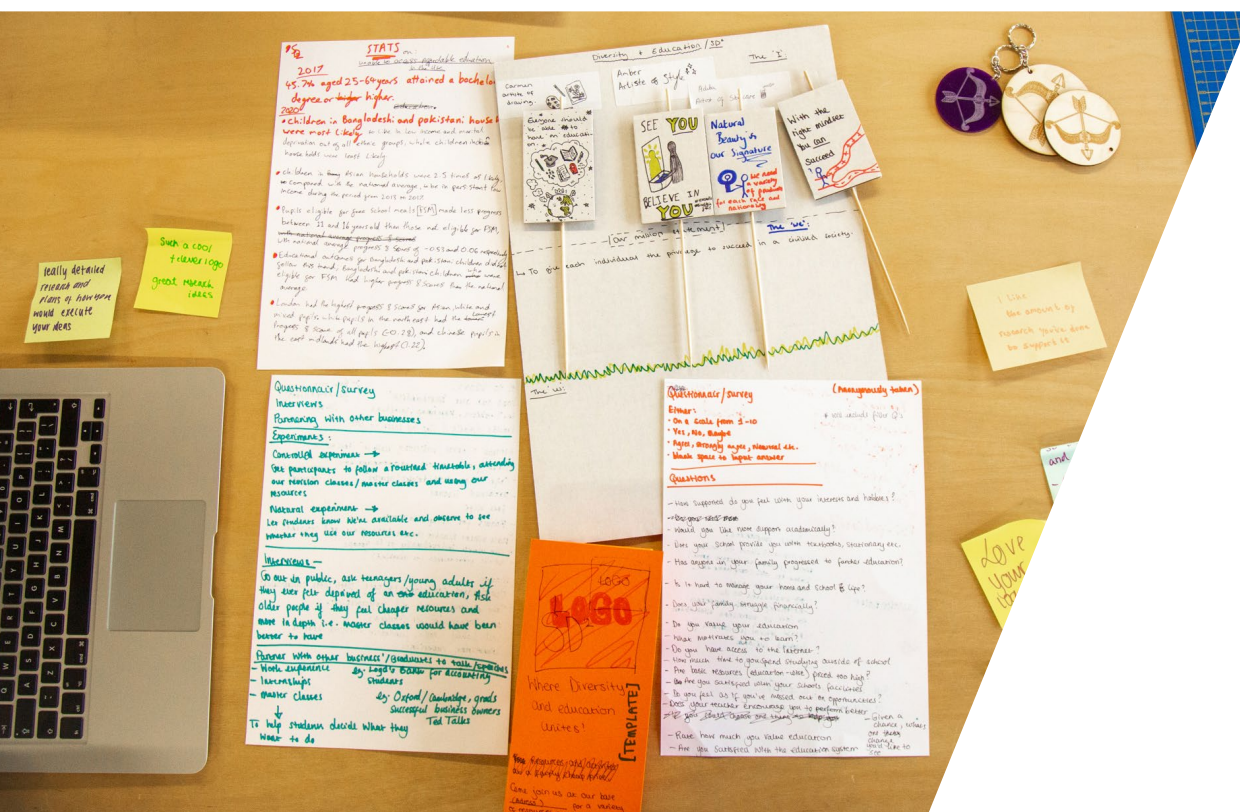 STATS on:
2017
45.7% aged 25-64 years attained a bachelo
degree or higher higher.
2020
• children in Bangladeshi and pakistani househ
were most likely to be in low income and material
deprivation out of all ethnic groups, while children in
households were least likely
• children in Asian households were 2.5 times as likely,
compared with the national average, to be in persistent low
income during the period from 2013 to 2017.
• Pupils eligible for free school meals [FSM] made less progress
between 11 and 16 years old than those not eligible for FSM,
with national average progress 8 scores of -0.53 and 0.06 respectively
• Educational outcomes for Bangladesh and pakistani children did not
follow this trend. Bangladeshi and pakistani children who were
eligible for FSM had higher progress 8 scores than the national
average.
• London had the highest progress 8 scores for Asian, white and
mixed pupils while pupils in the north east had the lowest
progress 8 score of all pupils (-0.28), and chinese pupils in
the east midlands had the highest (1.22).
Diversity + Education / SD*
The 'I'
Carmen
artiste of
drawing.
Amber
Artiste of Style
Everyone should
be able to
have an education.
SEE YOU
BELIEVE IN
YOU
Natural
Beauty is
our Signature
We need
a variety
of products
for each race and
nationality
With the
right mindset
You can
succeed
[Our mission statement]
The 'we':
↳ To give each individual the privilege to succeed in a civilised society.
really detailed
research and
plans of how there
would execute
your ideas
Such a cool
+ clever logo
great research
ideas
I like
the amount of
research you've done
to support it
and
Love
your
Questionnair/survey
Interviews
Partnering with other businesses
Experiments:
Controlled experiment →
Get participants to follow a routined timetable, attending
our revision classes/master classes and using our
resources
Natural experiment →
Let students know we're available and observe to see
whether they use our resources etc.
Interviews —
Go out in public, ask teenagers/young adults if
they ever felt deprived of an education, Ask
older people if they feel cheaper resources and
more in depth i.e. master classes would have been
better to have
Partner with other business'/Graduates to talk/speaches
- Work experience eg. Lloyd's Banks for accounting
- Internships students
- master classes eg. Oxford/Cambridge, grads
Successful business owners
↓ Ted Talks
To help students decide what they
want to do
LOGO
LOGO
Where Diversity
and education
Unites!
[TEMPLATE]
Come join us at our base
for a variety
Questionnair/survey (Anonymously taken)
Either:
• On a scale from 1-10
• Yes, No, Maybe
• Agree, strongly agree, Neutral etc.
• blank space to input answer
Questions
- How supported do you feel with your interests and hobbies?
- Would you like more support academically?
- Does your school provide you with textbooks, stationary etc.
- Has anyone in your family progressed to further education?
- Is it hard to manage your home and school life?
- Does your family struggle financially?
- Do you value your education
- What motivates you to learn?
- Do you have access to the internet?
- How much time do you spend studying outside of school
- Are basic resources (education-wise) priced too high?
- Are you satisfied with your schools facilities
- Do you feel as if you've missed out on opportunities?
- Does your teacher encourage you to perform better
- If you could choose one thing
- Given a
chance, what's
one thing
you'd like to
see
change
- Rate how much you value education
- Are you satisfied with the education system